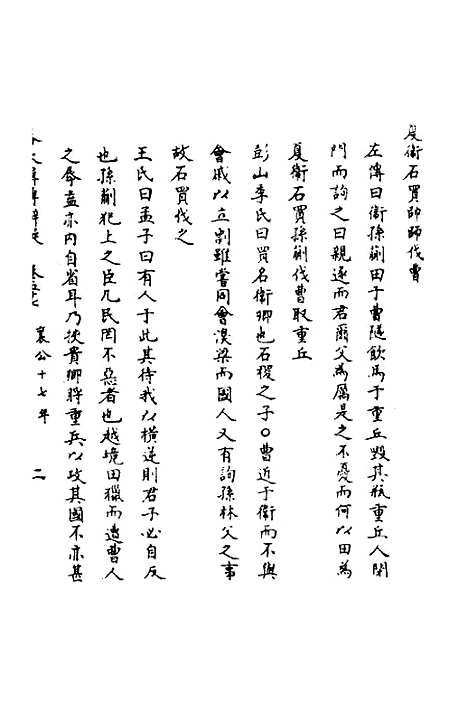 夏衛石買帥師伐曹
左傳曰衛孫蒯田于曹隧飲馬于重丘毀其瓶重丘人閉
門而詢之曰親逐而君爾父為厲是之不憂而何以田為
夏衛石買孫蒯伐曹取重丘
彭山季氏曰買名衛卿也石稷之子○曹近于衛而不與
會戚以立剽雖嘗同會溴梁而國人又有詢孫林父之事
故石買伐之
王氏曰孟子曰有人于此其待我以橫逆則君子必自反
也孫蒯犯上之臣凡民罔不憝者也越境田獵而遭曹人
之辱盍亦內自省耳乃挾貴卿將重兵以攻其國不亦甚
襄公十七年 二